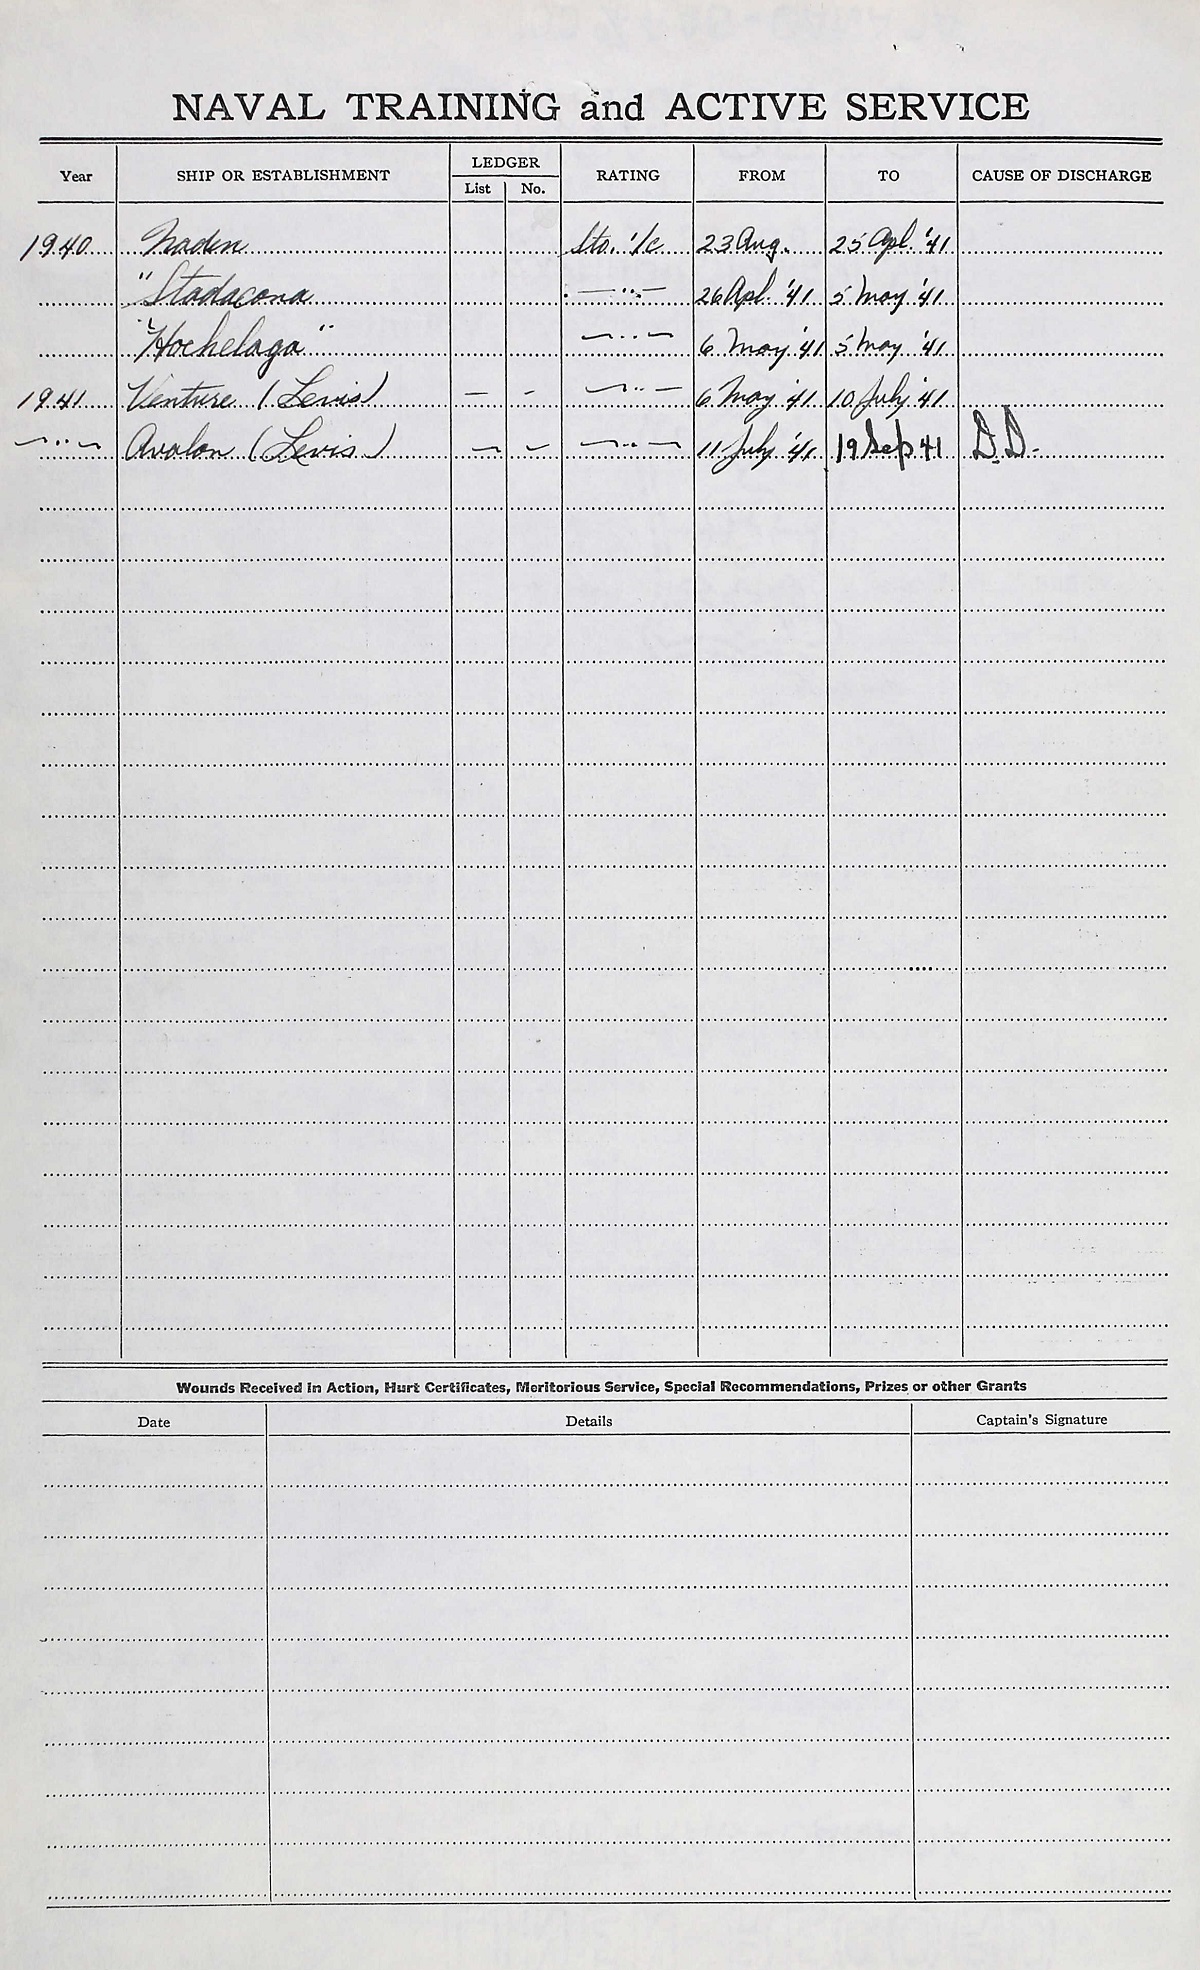 NAVAL TRAINING and ACTIVE SERVICE
Year SHIP OR ESTABLISHMENT LEDGER List No. RATING FROM TO CAUSE OF DISCHARGE
1940 Naden Sto. 1/c 23 Aug. 25 Apl. '41
"Stadacona —..— 26 Apl. '41 5 May '41
"Hochelaga" —..— 6 May '41 5 May '41
1941 Venture (Levis) — - —..— 6 May '41 10 July '41
—..— Avalon (Levis) — - —..— 11 July '41 19 Sep 41 D.D.
Wounds Received in Action, Hurt Certificates, Meritorious Service, Special Recommendations, Prizes or other Grants
Date Details Captain's Signature